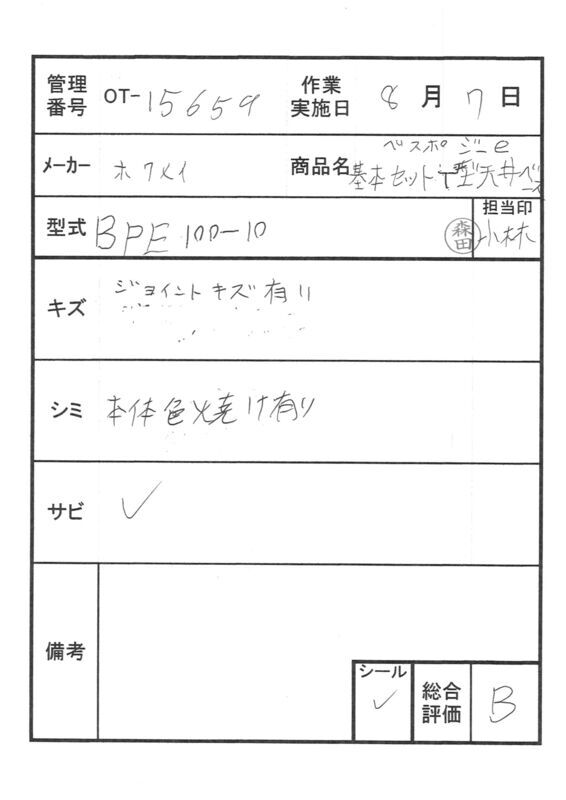 管理番号 OT-15659 作業実施日 8月7日
メーカー ホクメイ 商品名 ベスポジーe
基本セットT型天井ベース
型式 BPE100-10 森田 担当印 小林
キズ ジョイントキズ有り
シミ 本体色焼け有り
サビ ✓
備考
シール ✓ 総合評価 B